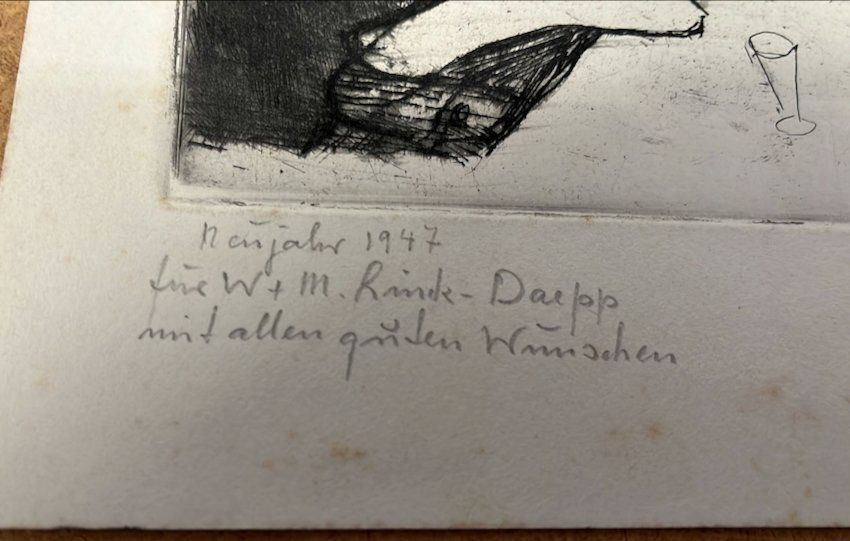 Neujahr 1947
für W + M. Linck-Daepp
mit allen guten Wünschen